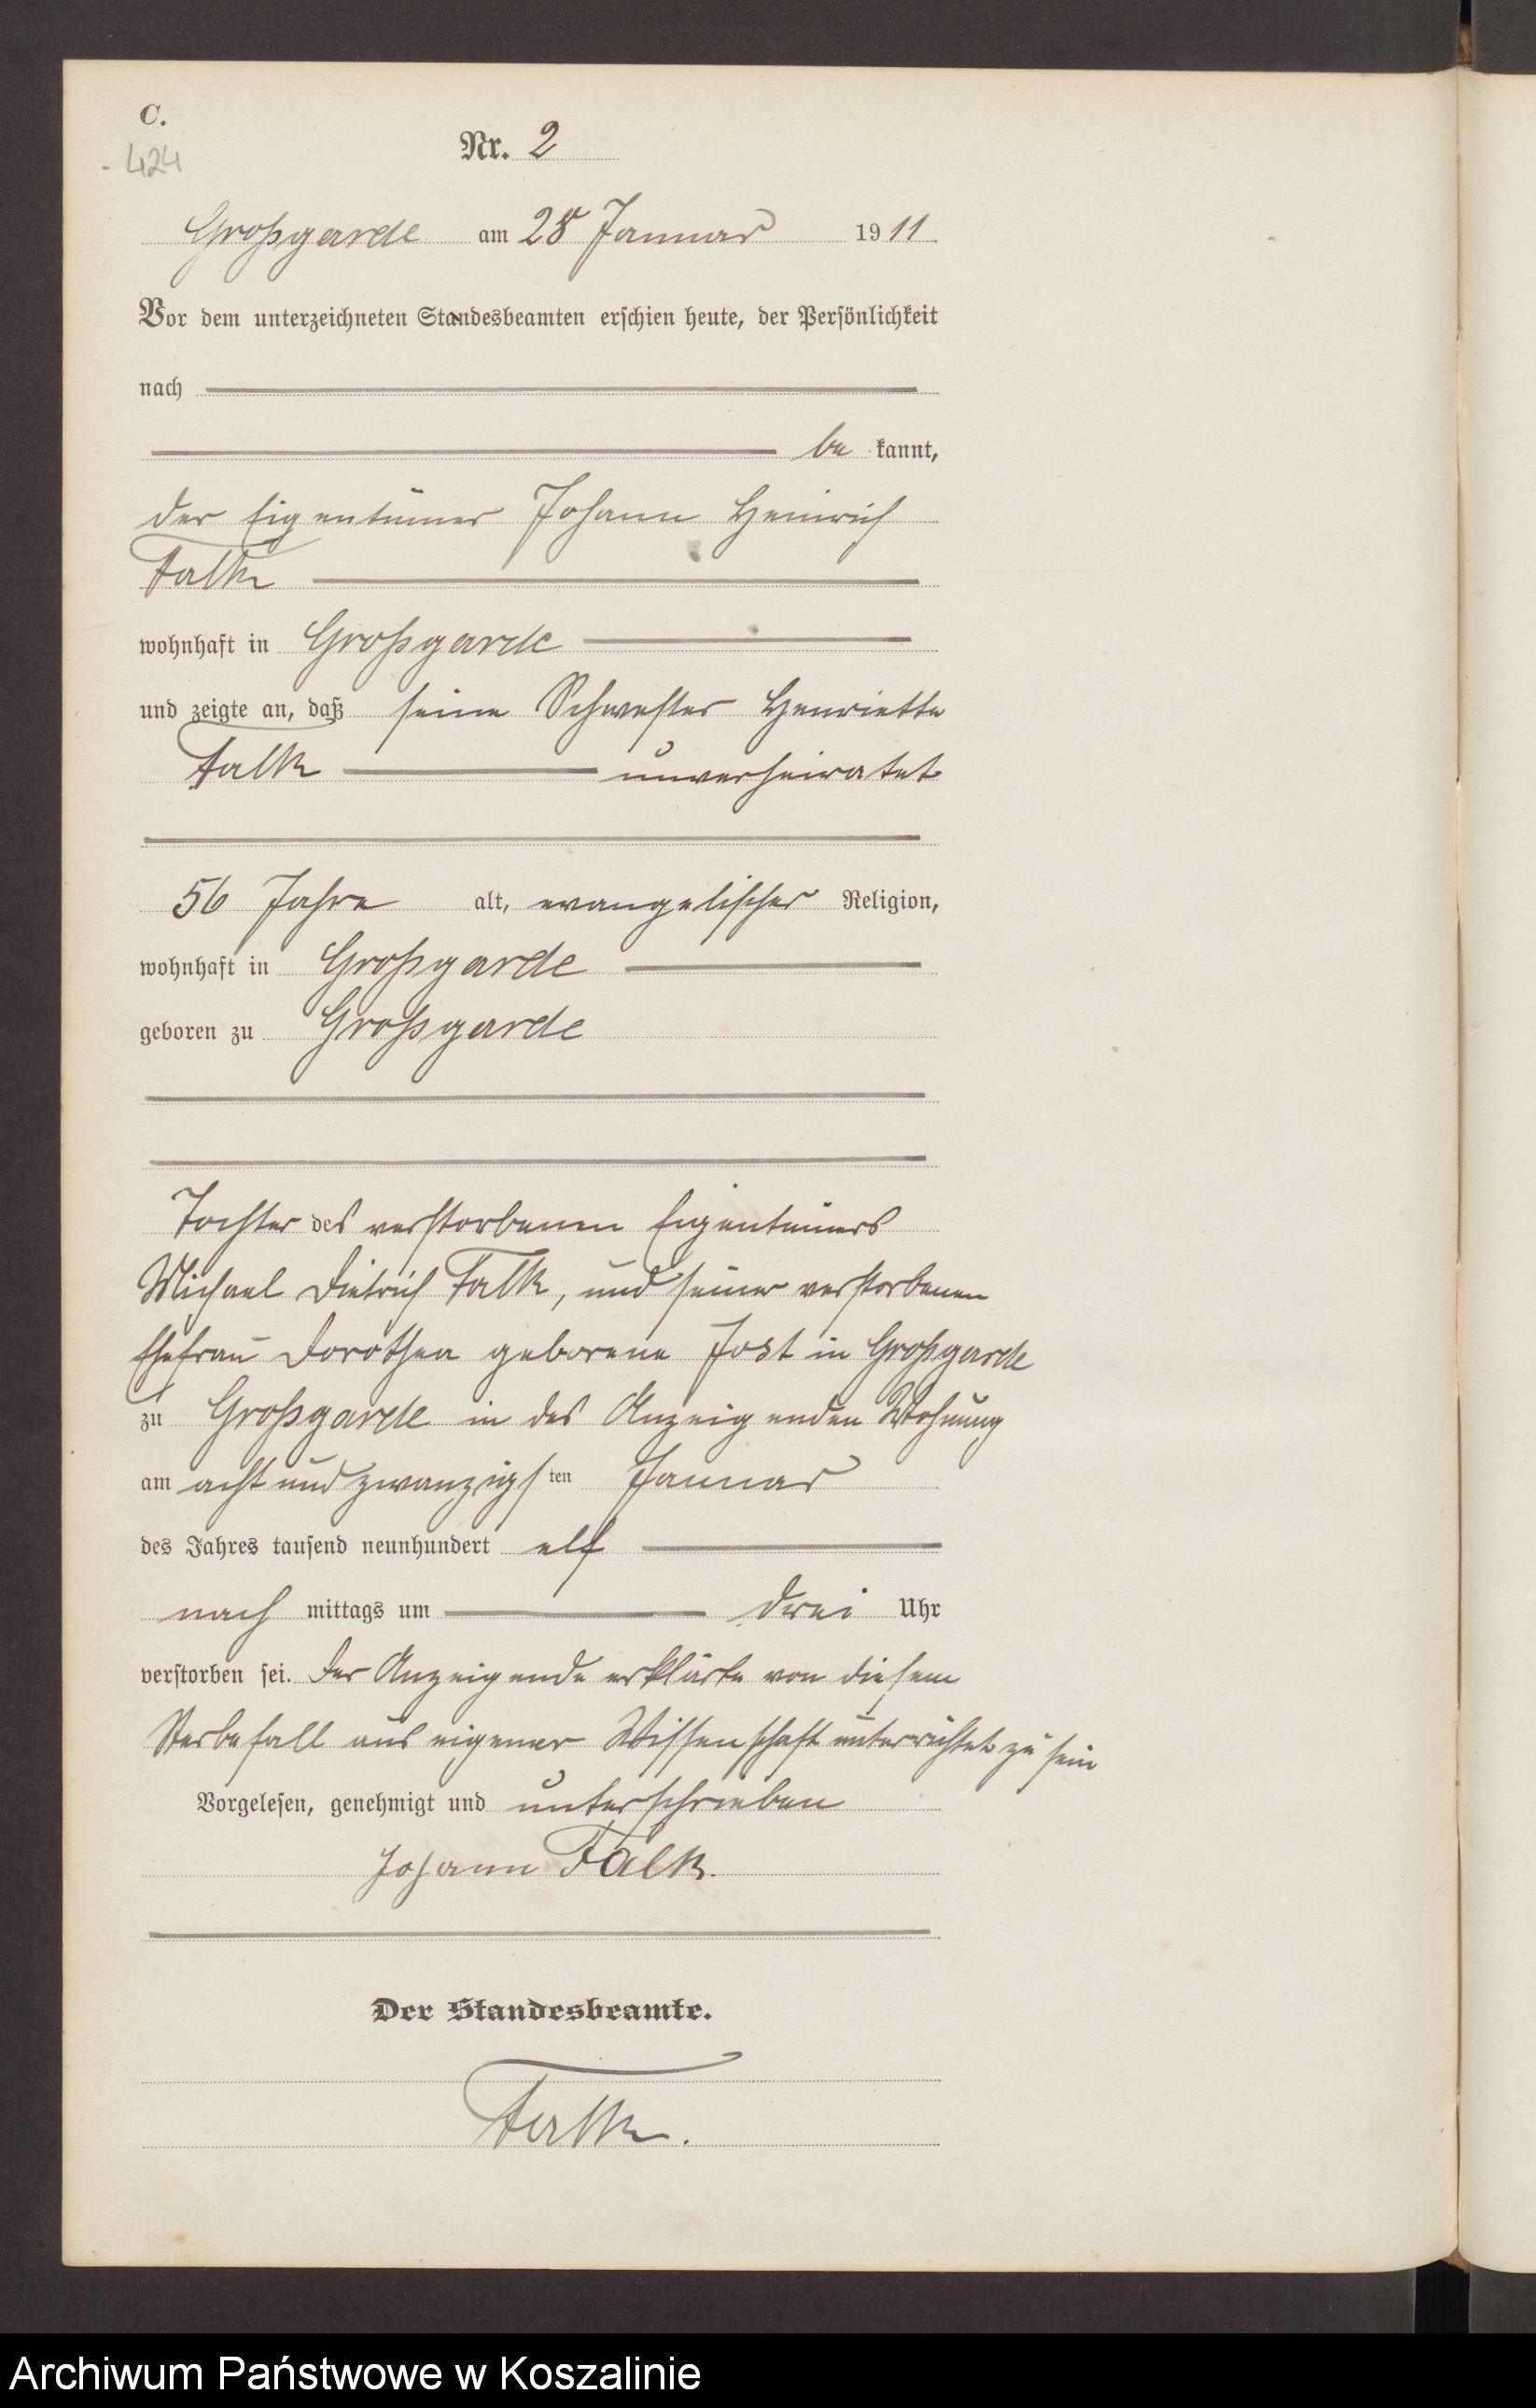 C.
- 424
Nr. 2
Großgarde am 28 Januar 1911
Vor dem unterzeichneten Standesbeamten erschien heute, der Persönlichkeit
nach
be kannt,
der Eigentümer Johann Heinrich
Falk
wohnhaft in Großgarde
und zeigte an, daß seine Schwester Henriette
Falk unverheiratet
56 Jahre alt, evangelischer Religion,
wohnhaft in Großgarde
geboren zu Großgarde
Tochter des verstorbenen Eigentümers
Michael Dietrich Falk, und seiner verstorbenen
Ehefrau Dorothea geborene Jost in Großgarde
zu Großgarde in des Anzeigenden Wohnung
am acht und zwanzigsten Januar
des Jahres tausend neunhundert elf
nach mittags um drei Uhr
verstorben sei. Der Anzeigende erklärte von diesem
Sterbefall aus eigener Wissenschaft unterrichtet zu sein
Vorgelesen, genehmigt und unterschrieben
Johann Falk.
Der Standesbeamte.
Falk.
Archiwum Państwowe w Koszalinie